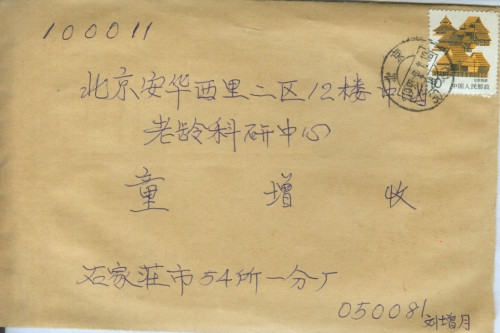 100011
北京安华西里二区12楼中国
老龄科研中心
童增 收
石家莊市54所一分厂
050081
刘增月
中国人民邮政
北京